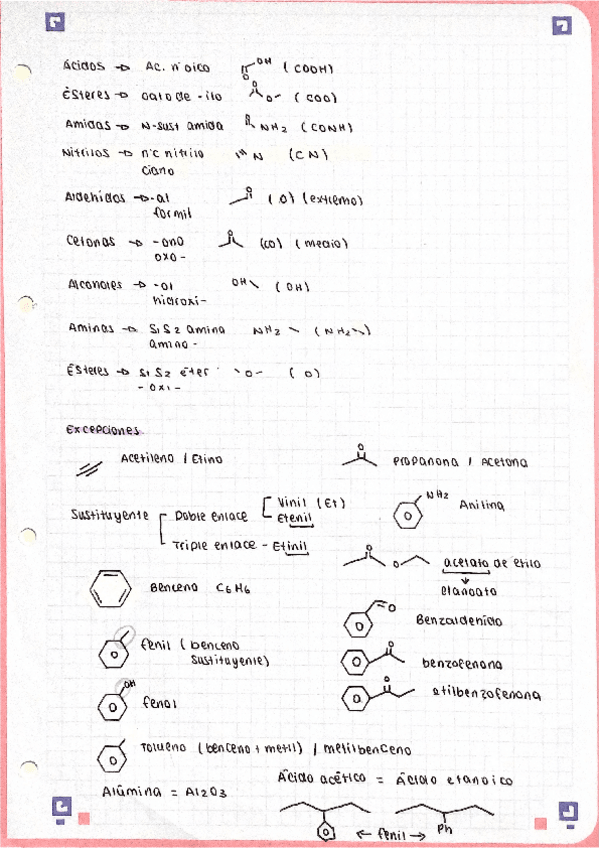 Ácidos → Ac. n oico OH O (COOH)
Ésteres → oato de -ilo O O- (COO)
Amidas → N-sust amida O NH2 (CONH)
Nitrilos → n'c nitrilo N (CN)
ciano
Aldehidos → -al O (O) (extremo)
formil
Cetonas → -ona O (CO) (medio)
oxo-
Alcoholes → -ol OH (OH)
hidroxi-
Aminas → S1 S2 amina NH2 (NH2)
amino-
Ésteres → S1 S2 éter O (O)
- oxi -
Excepciones
Acetileno / Etino
O Propanona / Acetona
Sustituyente Doble enlace Vinil (Et)
Etenil
Triple enlace - Etinil
NH2 Anilina
O O acetato de etilo
etanoato
Benceno C6H6
O Benzaldehido
fenil (benceno
sustituyente)
O benzofenona
OH fenol
O etilbenzofenona
Tolueno (benceno + metil) / metilbenceno
Ácido acético = Ácido etanoico
Alúmina = Al2O3
← fenil → Ph